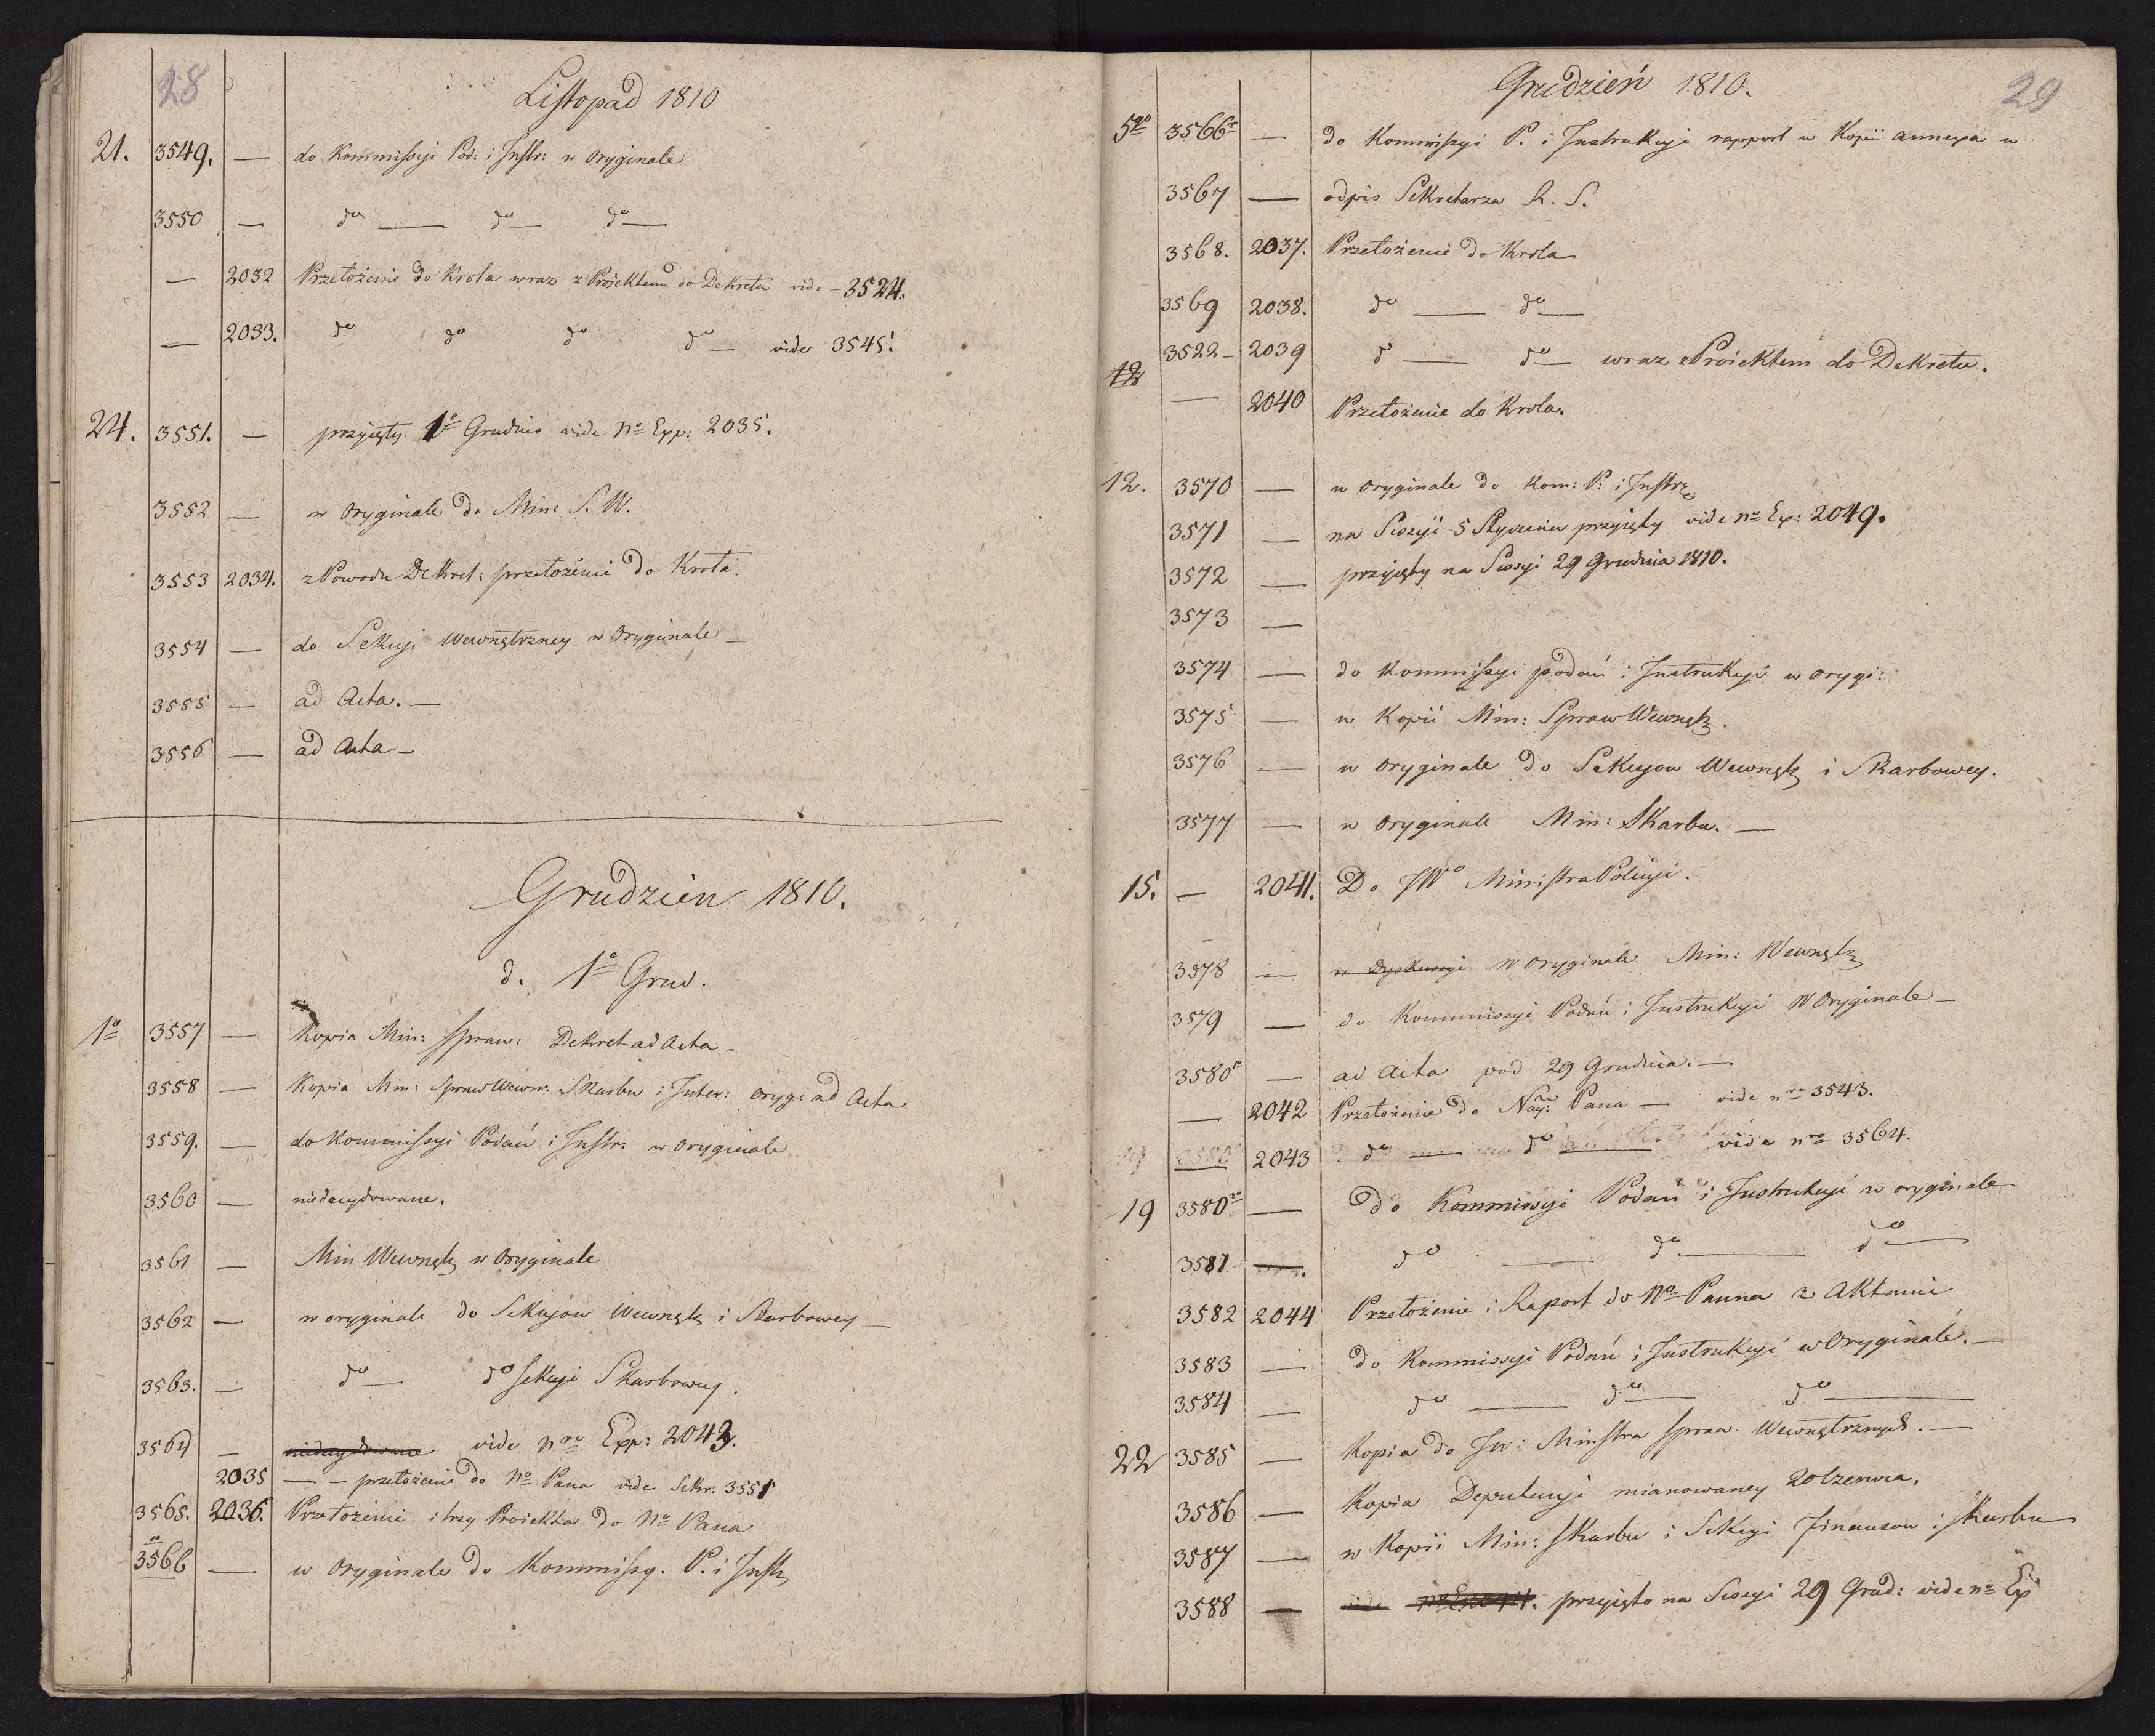 28
Listopad 1810
21. 3549. — do Kommissyi Pod: i Instr: w Oryginale
3550 — do — do — do —
— 2032 Przełożenie do Krola wraz z Proiektem do Dekretu vide — 3524.
— 2033. do do do do — vide 3545.
24. 3551. — przyięty 1o Grudnia vide No Exp: 2035.
3552 — w Oryginale do Min: S. W.
3553 2034. z Powodu Dekret: przełożenie do Krola.
3554 — do Sekcyi Wewnętrzney w Oryginale —
3555 — ad Acta. —
3556 — ad Acta —
Grudzien 1810.
d. 1o Grud.
1o 3557 — Kopia Min: Spraw: Dekret ad Acta —
3558 — Kopia Min: Spraw Wewn: Skarbu i Inter: Oryg: ad Acta
3559. — do Kommissyi Podań i Instr: w Oryginale
3560 — niedecydowane.
3561 — Min Wewnętz w Oryginale
3562 — w oryginale do Sekcyow Wewnętz i Skarbowey —
3563. — do — do Sekcyi Skarbowey.
3564 — niedecydowane. vide nro Exp: 2043.
2035 — — przełożenie do No Pana vide Sekr: 3551
3565. 2036. Przełożenie i trzy Proiekta do No Pana
3566 — w Oryginale do Kommissy. P. i Instr
29
Grudzień 1810.
5go 3566 — do Kommissyi P. i Instrukcyi rapport w Kopii annexa w
3567 — odpis Sekretarza R. S.
3568. 2037. Przełożenie do Krola
3569 2038. do — do —
12 3522 — 2039 do — do — wraz z Proiektem do Dekretu.
— 2040 Przełożenie do Krola.
12. 3570 — w Oryginale do Kom: P. i Instr
3571 — na Sessyi 5 Stycznia przyięty vide no Exp: 2049.
3572 — przyięty na Sessyi 29 Grudnia 1810.
3573 —
3574 — do Kommissyi podań i Instrukcyi w orygi:
3575 — w Kopii Min: Spraw Wewnętz.
3576 — w Oryginale do Sekcyow Wewnętz i Skarbowey.
3577 — w Oryginale Min: Skarbu. —
15. — 2041. Do JWo Ministra Policyi.
3578 — w oryginale Min: Wewnętz
3579 — do Kommissyi Podań i Instrukcyi W Oryginale —
3580 — ad Acta pod 29 Grudnia. —
— 2042 Przełożenie do Nay: Pana — vide nro 3543.
19 3580 2043 do — do — vide nro 3564.
19 3580 — do Kommissyi Podań i Instrukcyi w oryginale
3581 — do — do — do —
3582 2044 Przełożenie i Raport do No Panna z Aktami
3583 — do Kommissyi Podań i Instrukcyi w Oryginale. —
3584 — do — do — do —
22 3585 — Kopia do Jw: Ministra Spraw Wewnętrznych. —
3586 — Kopia Deputacyi mianowaney 20 Czerwca.
3587 — w Kopii Min: Skarbu i Sekcyi Finansow i Skarbu
3588 — vide przyięto na Sessyi 29 Grud: vide no Exp